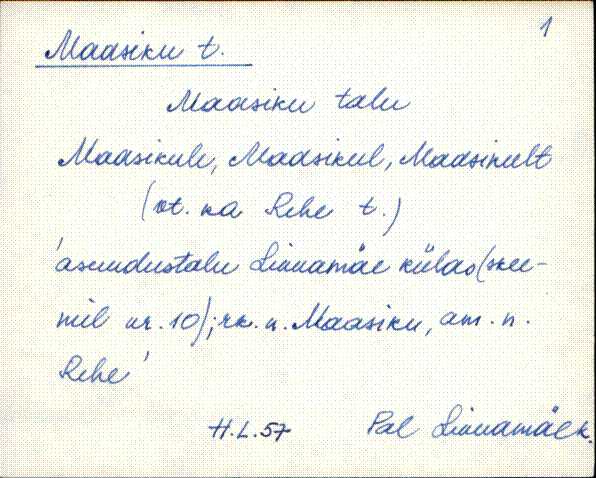 1
Maasiku t.
Maasiku talu
Maasikule, Maasikul, Maasikult
(vt. ka Rehe t.)
'asundustalu Linnamäe külas (skee-
mil nr. 10); rk. n. Maasiku, am. n.
Rehe'
H.L.57 Pal Linnamäe k.